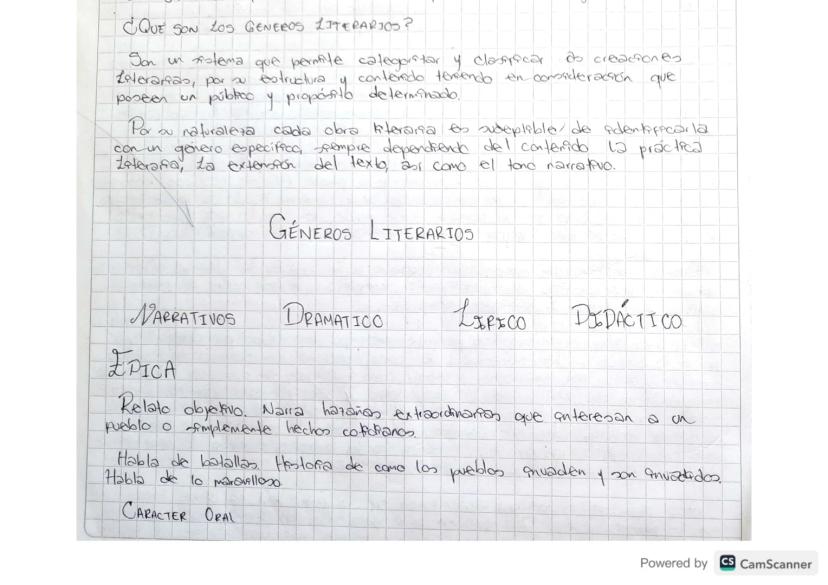 ¿QUE SON LOS GENEROS LITERARIOS?
Son un sistema que permite categorizar y clasificar las creaciones
literarias, por su estructura y contenido teniendo en consideración que
poseen un público y propósito determinado.
Por su naturaleza cada obra literaria es suseptible/ de identificarla
con un género específico, siempre dependiendo del contenido la práctica
literaria, la extensión del texto, así como el tono narrativo.
GÉNEROS LITERARIOS
NARRATIVOS DRAMATICO LIRICO DIDÁCTICO
ÉPICA
Relato objetivo. Narra hazañas extraordinarias que interesan a un
pueblo o simplemente hechos cotidianos.
Habla de batallas. Historia de como los pueblos invaden y son invadidos.
Habla de lo maravilloso
CARACTER ORAL
Powered by CS CamScanner